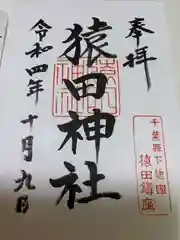 奉拝
猿田神社
令和四年十月九日
千葉縣下總國
猿田鎮座